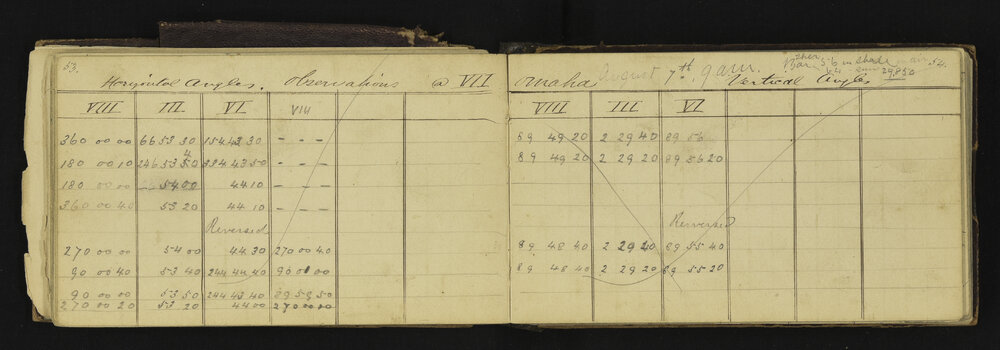 53.
Horizontal Angles. Observations @ VII
VIII III VI VIII
360 00 00 66 53 30 154 43 30 - - -
4
180 00 10 246 53 50 334 43 50 - - -
180 00 00 54 00 44 10 - - -
360 00 40 53 20 44 10 - - -
Reversed
270 00 00 54 00 44 30 270 00 40
90 00 40 53 40 244 44 40 90 00 00
90 00 00 53 50 244 43 40 89 59 50
270 00 20 53 20 44 00 270 00 00
Omaha August 7th. 9 a.m. Vertical Angles
Bar. 56 in shade
29.850
54.
VIII III VI
89 49 20 2 29 40 89 56
89 49 20 2 29 20 89 56 20
Reversed
89 48 40 2 29 20 89 55 40
89 48 40 2 29 20 89 55 20